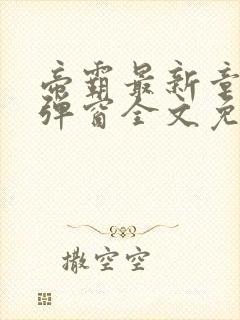 帝霸最新章
弹窗全文免
撒空空